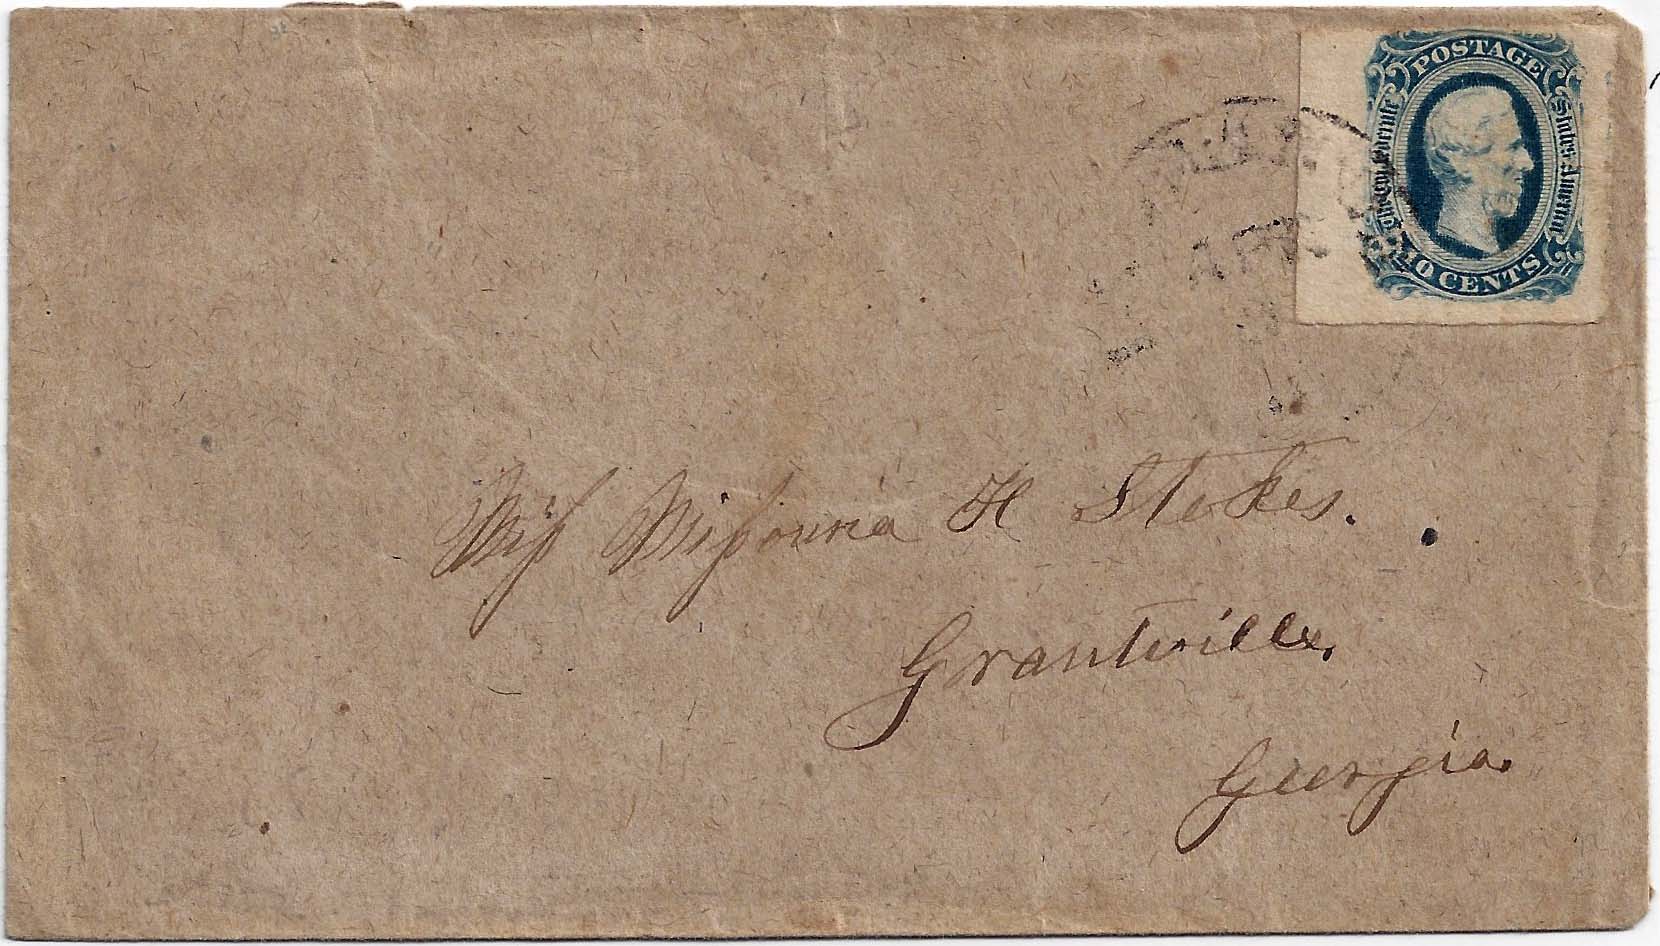 POSTAGE
The Confederate States of America
10 CENTS
APR
Miss Missouria H Stokes.
Grantville,
Georgia.